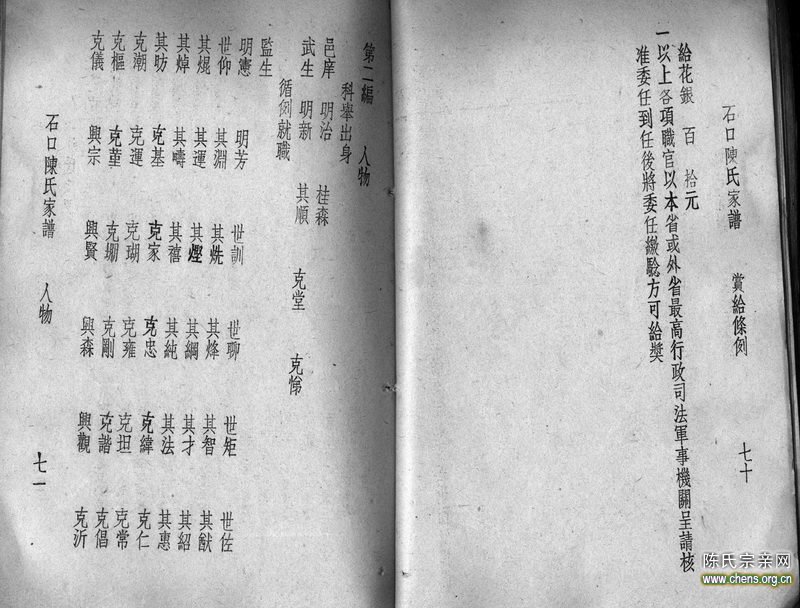 石口陳氏家譜 賞給條例 七十
給花銀 百 拾元
一以上各項職官以本省或外省最高行政司法軍事機關呈請核
准委任到任後將委任繳驗方可給獎
第二編 人物
科舉出身
邑庠 明治 桂森
武生 明新 其順 克堂 克悌
循例就職
監生
明憲 明芳 世訓 世聊 世矩 世佐
世仰 其淵 其 其烽 其智 其猷
其焜 其運 其 其綱 其才 其紹
其焯 其疇 其禧 其純 其法 其惠
其昉 克基 克家 克忠 克緯 克仁
克潮 克運 克瑚 克雍 克坦 克常
克樞 克堇 克堋 克剛 克諧 克倡
克儀 興宗 興賢 興森 興觀 克沂
石口陳氏家譜 人物 七一
陈氏宗亲网
www.chens.org.cn